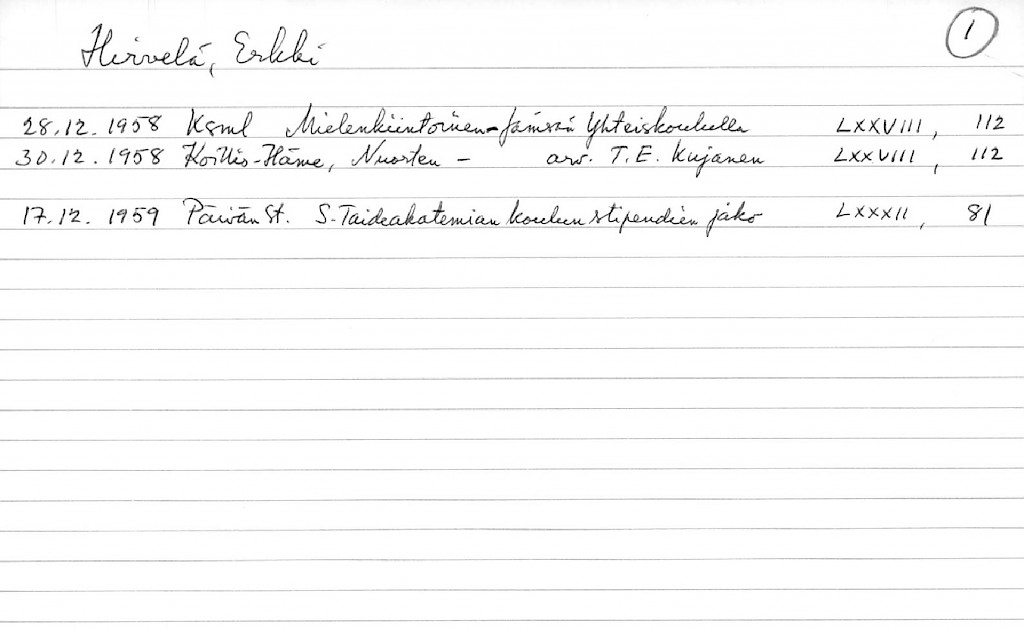 Hirvelä, Erkki
1
28.12.1958 Ksml Mielenkiintoinen - Jämsän Yhteiskoululla LXXVIII, 112
30.12.1958 Koillis-Häme, Nuorten - arv. T.E. Kujanen LXXVIII, 112
17.12.1959 Päivän St. S-Taideakatemian koulun stipendien jako LXXXII, 81